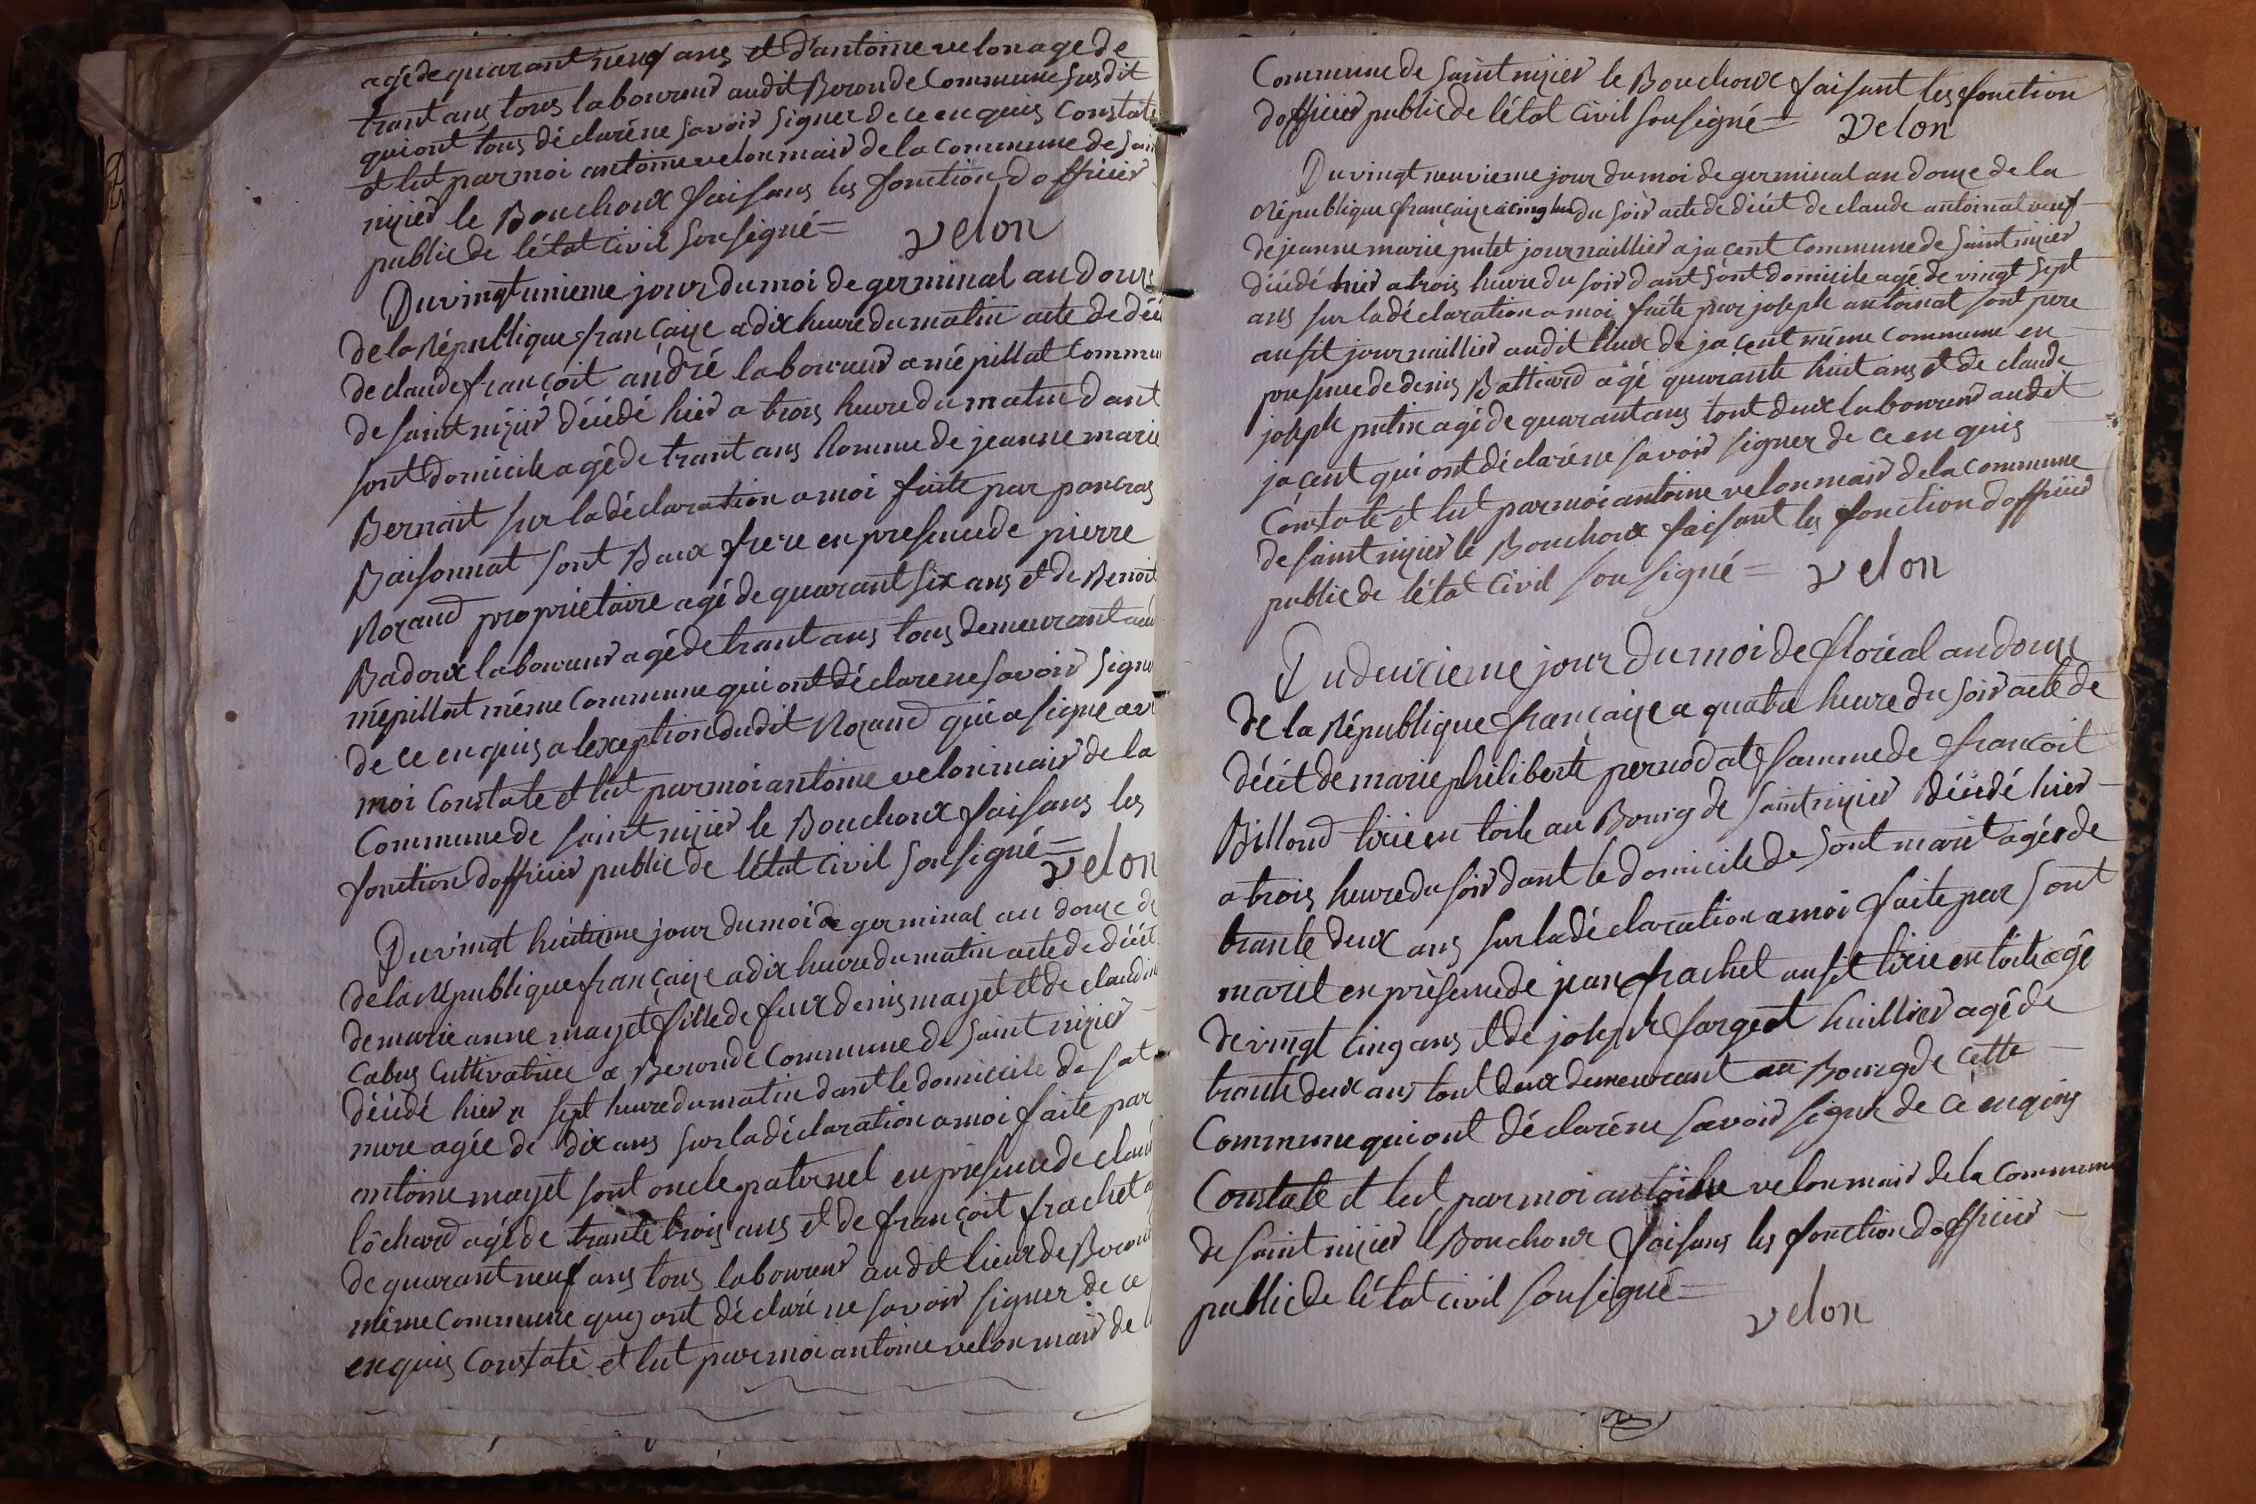 agé de quarant neuf ans et d'antoine velon age de
trant ans tous laboureur audit Beronde Commune susdit
qui ont tous déclaré ne savoir signer de ce enquis Constate
et lut par moi antoine velon mair de la Commune de sain
nizier le Bouchoux faisans les fonction dofficier
public de létat civil sousigné =
velon
Du vingt unieme jour du moi de germinal an douze
de la République française a dix heure du matin acte de déc
de claude françoit andré laboureur a mépillat Commu
de saint nizier décédé hier a trois heure du matin dant
sont domicile agé de trant ans homme de jeanne marie
Bernait sur la déclaration a moi faite par pancras
Baisonnat sont Baux frere en presence de pierre
Morand proprietaire agé de quarant six ans et de Benoit
Badoux laboureur agé de trant ans tous demeurant au
mépillat même Commune qui ont déclare ne savoir signe
de ce enquis a lexception dudit Morand qui a signe av
moi Constate et lut par moi antoine velon mair de la
Commune de saint nizier le Bouchoux faisans les
fonction dofficier public de létat civil sousigné =
velon
Du vingt huitieme jour du moi de germinal an douze de
de la République française a dix heure du matin acte de décet
de marie anne mayet fille de feux denis mayet et de claudine
Cabus Cultivatrice a Beronde Commune de saint nizier
décédé hier a sept heure du matin dant le domicile de sat
mere agée de dix ans sur la déclaration a moi faite par
antoine mayet sont oncle paternel en presence de claud
lôchard agé de trante trois ans et de françoit frachet a
de quarant neuf ans tous laboureur audit lieux de Beron
même Commune qui ont déclaré ne savoir signer de ce
enquis Constaté et lut par moi antoine velon mair de l
Commune de saint nizier le Bouchoux faisant les fonction
dofficier public de létat civil sousigné =
velon
Du vingt neuvieme jour du moi de germinal an douze de la
République française a cinq heu du soir acte de décet de claude antoinat veuf
de jeanne marie putet journaillier a jacent Commune de saint nizier
décédé hier a trois heure du soir dant sont domicile agé de vingt sept
ans sur la déclaration a moi faite par joseph antoinat sont pere
ausit journaillier audit lieux de jacent même Commune en
presence de denis Battiard agé quarante huit ans et de claude
joseph putin agé de quarant ans tout deux laboureur audit
jacent qui ont déclaré ne savoir signer de ce enquis
Constaté et lut par moi antoine velon mair de la Commune
de saint nizier le Bouchoux faisant les fonction dofficier
public de létat civil sousigné =
velon
Du deuxieme jour du moi de floréal an douze
de la République française a quatre heure du soir acte de
décét de marie philiberte pernodat famme de françoit
Billoud tirie en toile au Bourg de saint nizier décédé hier
a trois heure du soir dant le domicile de sont marit agée de
trante deux ans sur la déclaration a moi faite par sont
marit en présence de jean frachet ausit tirie en toile agé
de vingt cinq ans et de joseph fargeot huillier agé de
trante deux ans tout deux demeurant au Bourg de cette
Commune qui ont déclaré ne savoir signer de ce enquis
Constate et lut par moi antoine velon mair de la Commune
de saint nizier le Bouchoux faisans les fonction dofficier
public de létat civil sousigné =
velon